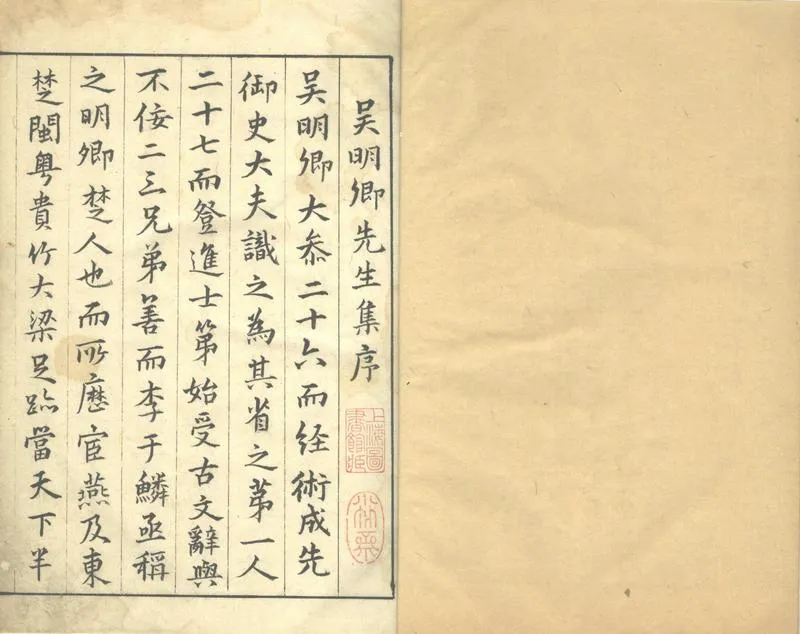 吴明卿先生集序
吴明卿大叅二十六而経術成先
御史大夫識之為其省之苐一人
二十七而登進士第始受古文辭與
不佞二三兄弟善而李于鱗亟稱
之明卿楚人也而所歷宦燕及東
楚閩粤貴竹大梁足跡當天下半
上海圖書館藏